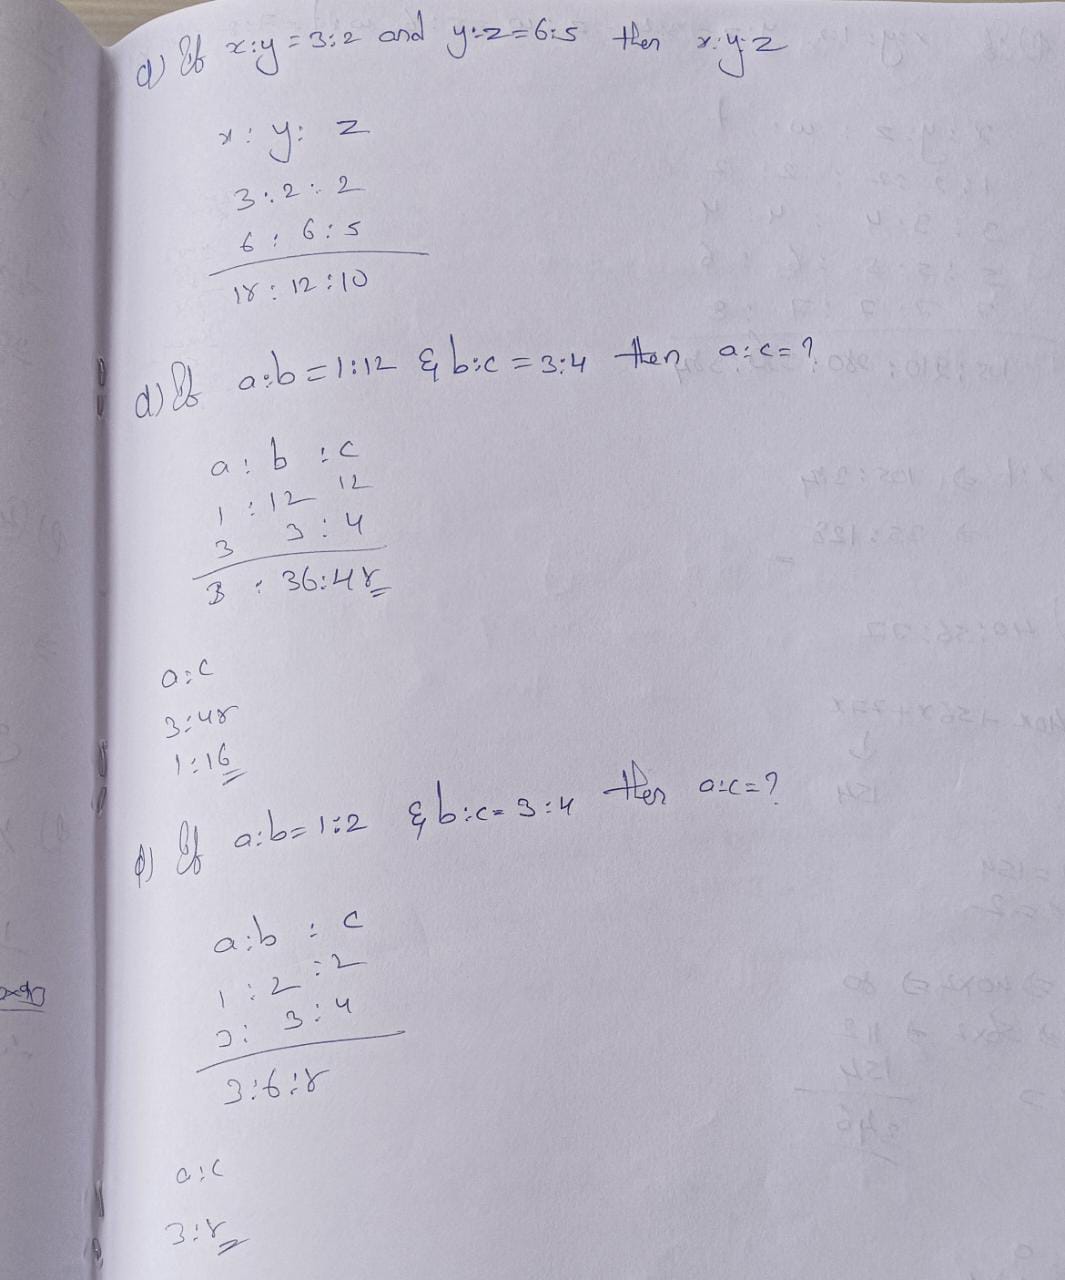 a) If x:y = 3:2 and y:z = 6:5 then x:y:z
x : y : z
3 : 2 : 2
6 : 6 : 5
18 : 12 : 10
a) If a:b = 1:12 & b:c = 3:4 then a:c = ?
a : b : c
1 : 12 12
3 3 : 4
3 : 36 : 48
a:c
3:48
1:16
If a:b = 1:2 & b:c = 3:4 then a:c = ?
a:b : c
1 : 2 : 2
3 : 3 : 4
3:6:8
a:c
3:8